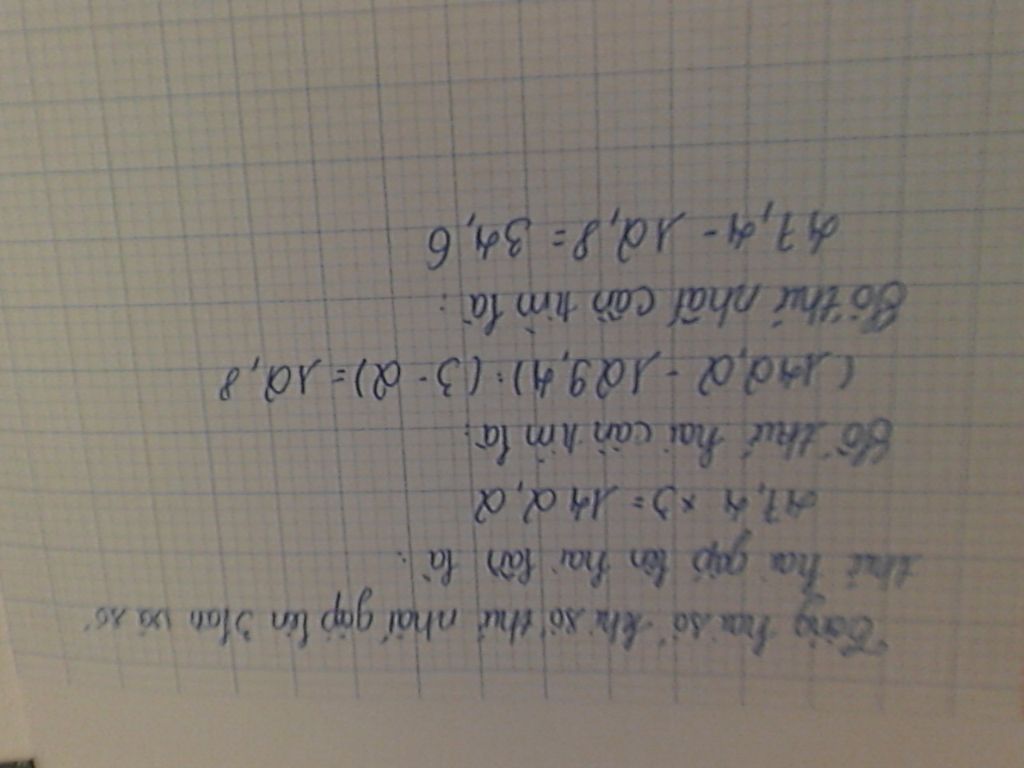 Tổng hai số khi số thứ nhất gấp lên 3 lần và số
thứ hai gấp lên hai lần là:
47,4 × 3 = 142,2
Số thứ hai cần tìm là:
(142,2 - 129,4) : (3 - 2) = 12,8
Số thứ nhất cần tìm là:
47,4 - 12,8 = 34,6